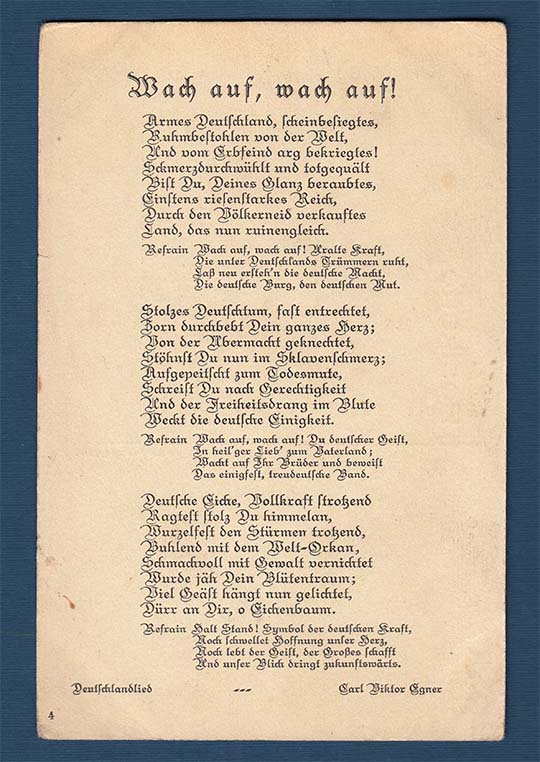 Wach auf, wach auf!
Armes Deutschland, scheinbesiegtes,
Ruhmbestohlen von der Welt,
Und vom Erbfeind arg bekriegtes!
Schmerzdurchwühlt und totgequält
Bist Du, Deines Glanz beraubtes,
Einstens riesenstarkes Reich,
Durch den Völkerneid verkauftes
Land, das nun ruinengleich.
Refrain Wach auf, wach auf! Uralte Kraft,
Die unter Deutschlands Trümmern ruht,
Laß neu ersteh'n die deutsche Macht,
Die deutsche Burg, den deutschen Mut.
Stolzes Deutschtum, fast entrechtet,
Zorn durchbebt Dein ganzes Herz;
Von der Übermacht geknechtet,
Stöhnst Du nun im Sklavenschmerz;
Aufgepeitscht zum Todesmute,
Schreist Du nach Gerechtigkeit
Und der Freiheitsdrang im Blute
Weckt die deutsche Einigkeit.
Refrain Wach auf, wach auf! Du deutscher Geist,
In heil'ger Lieb' zum Vaterland;
Wacht auf Ihr Brüder und beweist
Das einigfest, treudeutsche Band.
Deutsche Eiche, Vollkraft strotzend
Ragtest stolz Du himmelan,
Wurzelfest den Stürmen trotzend,
Buhlend mit dem Welt-Orkan,
Schmachvoll mit Gewalt vernichtet
Wurde jäh Dein Blütentraum;
Viel Geäst hängt nun gelichtet,
Dürr an Dir, o Eichenbaum.
Refrain Halt Stand! Symbol der deutschen Kraft,
Noch schwellet Hoffnung unser Herz,
Noch lebt der Geist, der Großes schafft
Und unser Blick dringt zukunftswärts.
Deutschlandlied --- Carl Viktor Egner
4